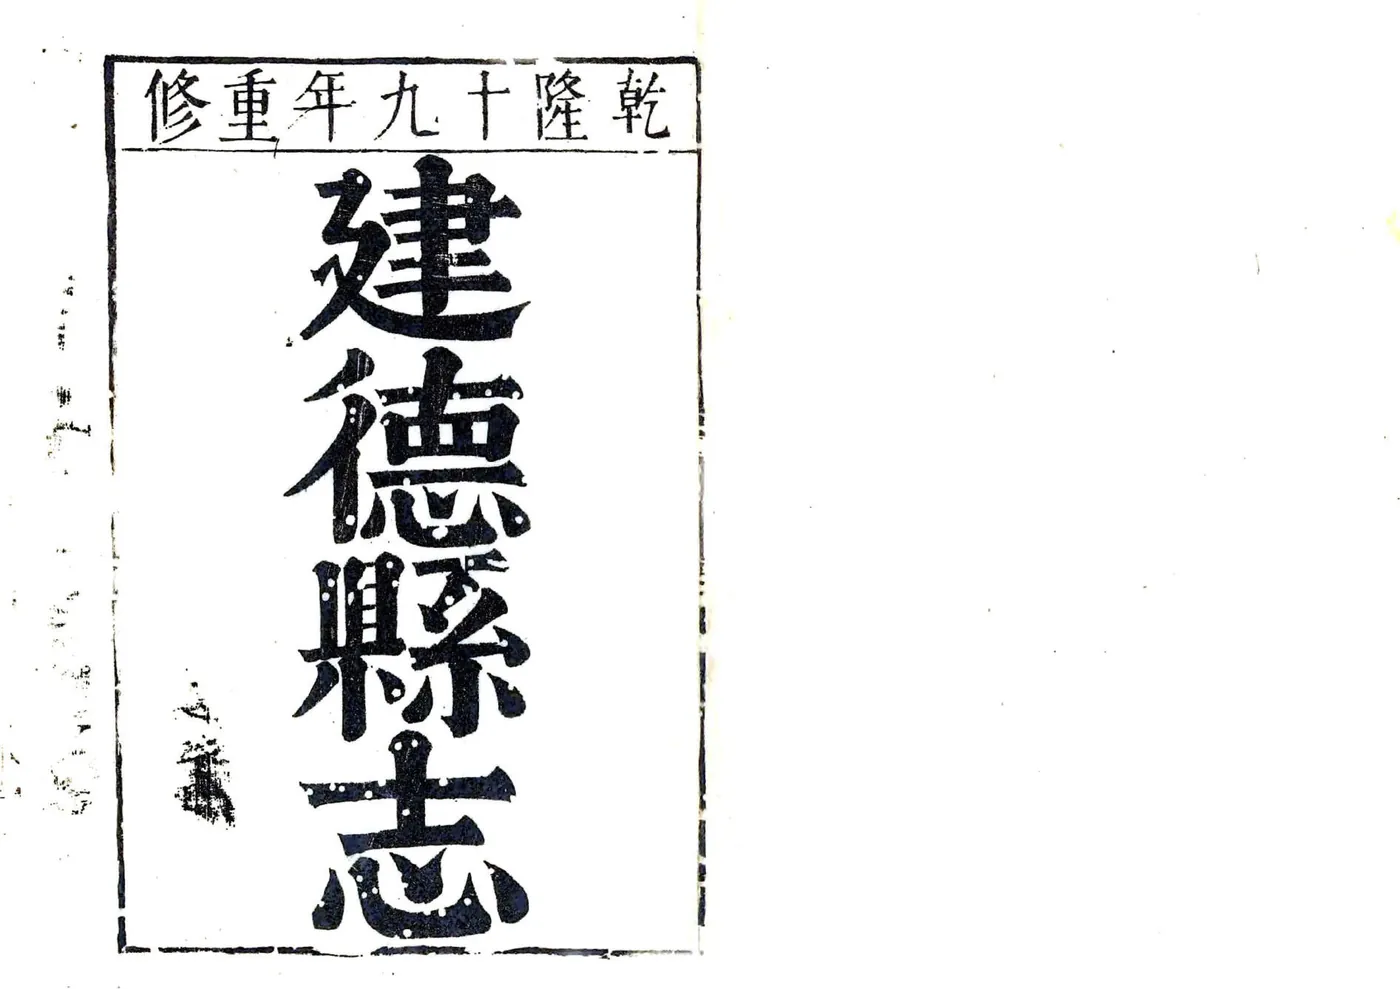 乾隆十九年重修
建德縣志